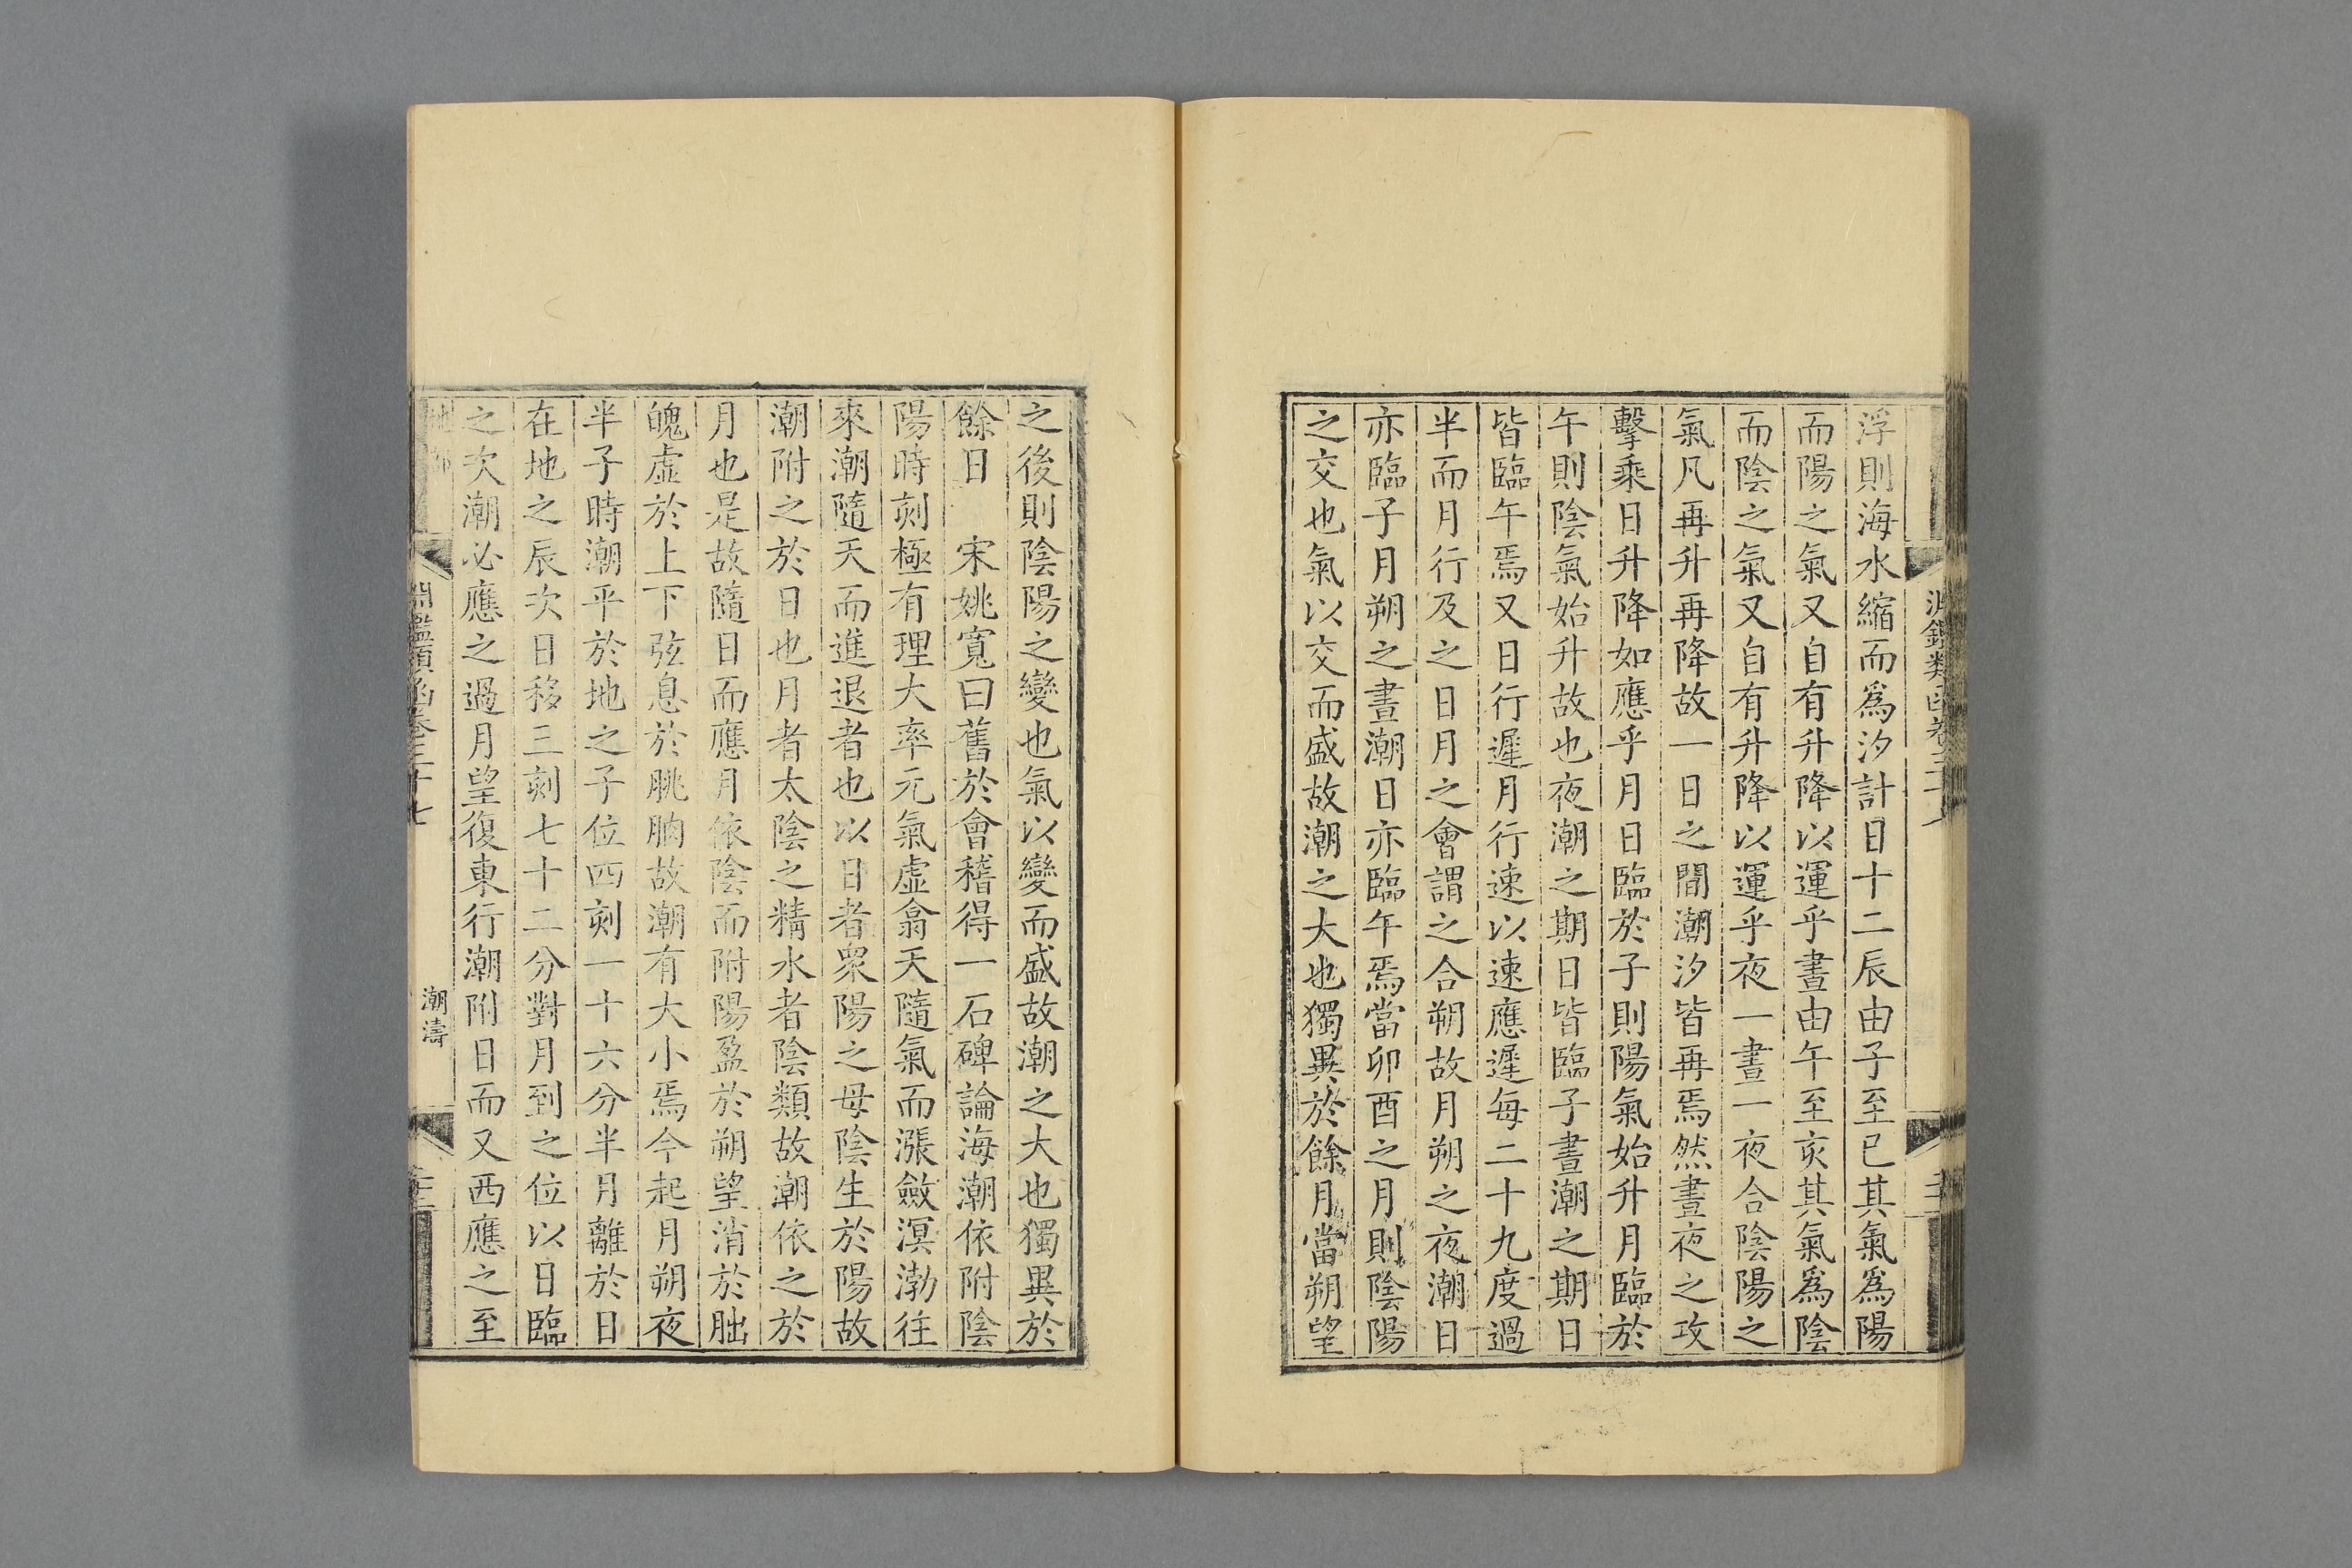 浮則海水縮而爲汐計日十二辰由子至巳其氣爲陽
而陽之氣又自有升降以運乎晝由午至亥其氣爲陰
而陰之氣又自有升降以運乎夜一晝一夜合陰陽之
氣凡再升再降故一日之間潮汐皆再焉然晝夜之攻
擊乘日升降如應乎月日臨於子則陽氣始升月臨於
午則陰氣始升故也夜潮之期日皆臨子晝潮之期日
皆臨午焉又日行遲月行速以速應遲每二十九度過
半而月行及之日月之會謂之合朔故月朔之夜潮日
亦臨子月朔之晝潮日亦臨午焉當卯酉之月則陰陽
之交也氣以交而盛故潮之大也獨異於餘月當朔望
之後則陰陽之變也氣以變而盛故潮之大也獨異於
餘日　宋姚寬曰舊於會稽得一石碑論海潮依附陰
陽時刻極有理大率元氣虛翕天隨氣而漲斂溟渤往
來潮隨天而進退者也以日者衆陽之母陰生於陽故
潮附之於日也月者太陰之精水者陰類故潮依之於
月也是故隨日而應月依陰而附陽盈於朔望消於朏
魄虛於上下弦息於朓朒故潮有大小焉今起月朔夜
半子時潮平於地之子位四刻一十六分半月離於日
在地之辰次日移三刻七十二分對月到之位以日臨
之次潮必應之過月望復東行潮附日而又西應之至
淵鑑類函卷三十七
潮濤